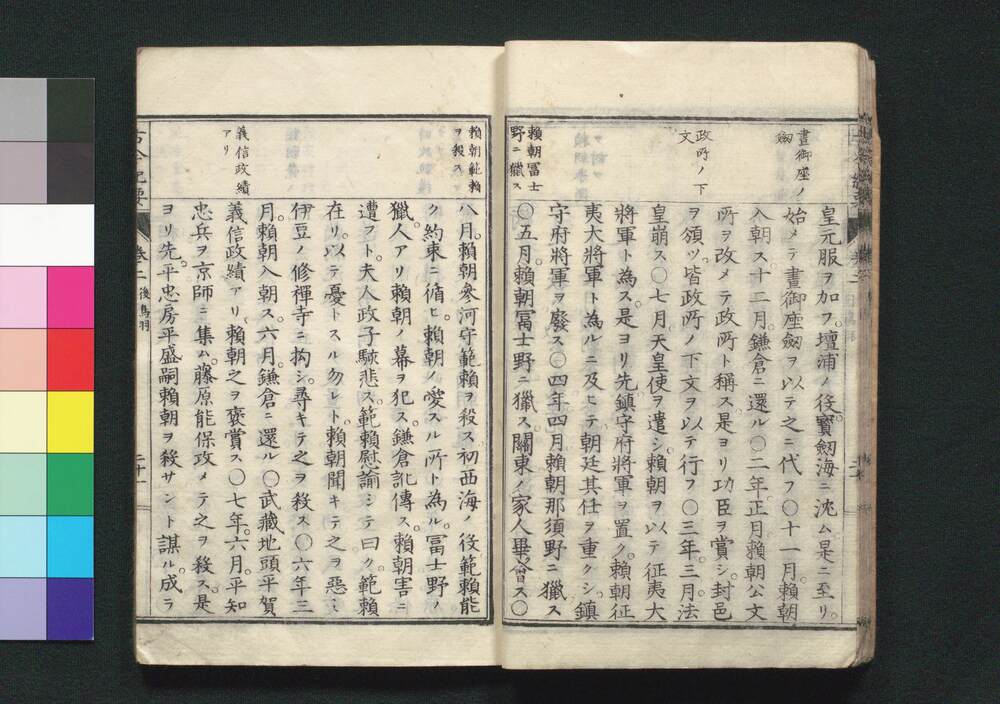 晝御座ノ
劔
政所ノ下
文
賴朝冨士
野ニ獵ス
皇元服ヲ加フ。壇浦ノ役。寳劔海ニ沈ム是ニ至リ。
始メテ晝御座劔ヲ以テ之ニ代フ〇十一月。賴朝
入朝ス十二月。鎌倉ニ還ル〇二年。正月賴朝公文
所ヲ改メテ政所ト稱ス是ヨリ功臣ヲ賞シ。封邑
ヲ頒ツ。皆政所ノ下文ヲ以テ行フ〇三年。三月法
皇崩ス〇七月。天皇使ヲ遣シ。賴朝ヲ以テ征夷大
將軍ト為ス。是ヨリ先鎮守府將軍ヲ置ク。賴朝征
夷大將軍ト為ルニ及ヒテ朝廷其任ヲ重クシ。鎮
守府將軍ヲ廢ス〇四年四月賴朝那須野ニ獵ス
〇五月。賴朝冨士野ニ獵ス。關東ノ家人畢會ス〇
賴朝範賴
ヲ殺ス
義信政績
アリ
八月。賴朝參河守範賴ヲ殺ス。初西海ノ役範賴能
ク約束ニ循ヒ。賴朝ノ愛スル所ト為ル。冨士野ノ
獵。人アリ賴朝ノ幕ヲ犯ス。鎌倉訛傳ス。賴朝害ニ
遭フト。夫人政子駭悲ス。範賴慰諭シテ曰ク。範賴
在リ。以テ憂トスル勿レト。賴朝聞キテ之ヲ惡ミ
伊豆ノ修禪寺ニ拘シ。尋キテ之ヲ殺ス〇六年三
月。賴朝入朝ス。六月。鎌倉ニ還ル〇武藏地頭平賀
義信政績アリ。賴朝之ヲ褒賞ス〇七年。六月。平知
忠兵ヲ京師ニ集ム。藤原能保攻メテ之ヲ殺ス。是
ヨリ先。平忠房平盛嗣賴朝ヲ殺サント謀ル。成ラ
卷二
後鳥羽
二十一